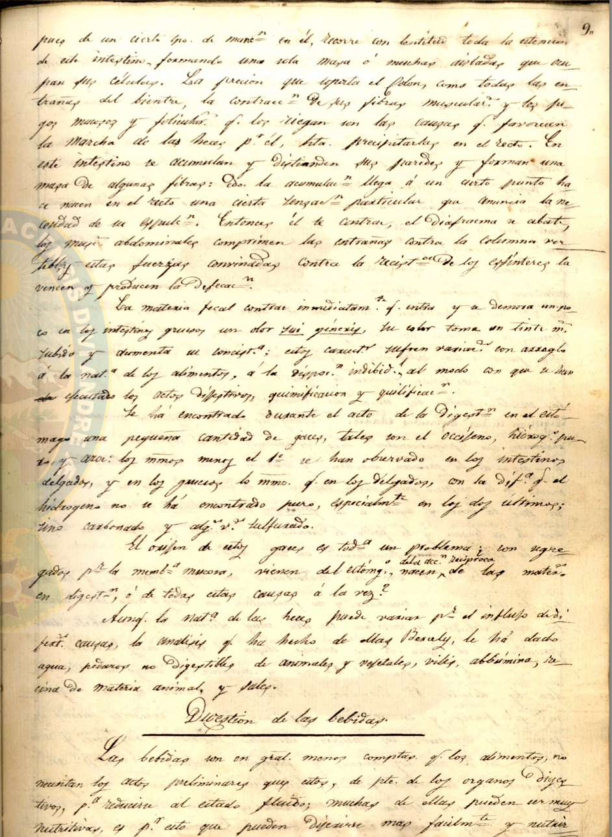 9.
pues de un cierto tpo. de mans.n en él, recorre con lentitud toda la estencion
de este intestino, formando una sola masa ó muchas aisladas que ocu
pan sus células. La presion que soporta el Colon, como todas las en
trañas del bientre, la contracc.n de sus fibras muscular.s y los ju
gos mucosos y folicular.s q.e los riegan son las causas q.e favorecen
la marcha de las heces p.r él, hta. precipitarlas en el recto. En
este intestino se acumulan y distienden sus paredes y forman una
masa de algunas libras: cdo. la acumulac.n llega á un cierto punto ha
ce nacer en el recto una cierta sensac.n particular que anuncia la ne
cesidad de su espuls.n. Entonces él se contrae, el diafracma se abate,
los musc.s abdominales comprimen las entrañas contra la columna ver
tebl. y estas fuerzas convinadas contra la resist.cia de los esfínteres la
vencen y producen la defecac.n
La materia fecal contrae inmediatam.te q.e entra y se demora un po
co en los intestinos gruesos un olor sui generis, su color toma un tinte m.s
subido y aumenta su concist.a; estos caract.s sufren variac.s con arreglo
á la nat.a de los alimentos, á la dispos.n indibid.l, al modo con que se han
ejecutado los actos digestivos, quimificacion y quilificac.n.
Se há encontrado durante el acto de la digest.n en el estó
mago una pequeña cantidad de gaces, tales son el occígeno, hidrog.o pu
ro y azoe: los mmos menos el 1.o se han observado en los intestinos
delgados, y en los gruesos lo mmo. q.e en los delgados, con la dif.a q.e el
hidrogeno no se há encontrado puro, especialm.te en los dos ultimos;
sino carbonado y alg.s v.s sulfurado.
El orígen de estos gaces es tod.a un problema; son segre
gados p.r la memb.a mucosa, vienen del estómg.o, nacen de la acc.n recíproca de las mater.s
en digest.n, ó de todas estas causas á la vez?
Aunq.e la nat.a de las heces puede variar p.r el influjo de di
fert.s causas, la analisis q.e ha hecho de ellas Berzely, le há dado
agua, pedazos no digestibles de animales y vegetales, vilis, albúmina, re
cina de materia animal, y sales.
Digestión de las bebidas.
Las bebidas son en gral. menos complcas. q.e los alimentos, no
necesitan los actos preliminares ques estos, de pte. de los organos diges
tivos, p.a reducirse al estado fluido; muchas de ellas pueden ser muy
nutritivas, es p.r esto que pueden digerirse mas facilm.te y nutrir